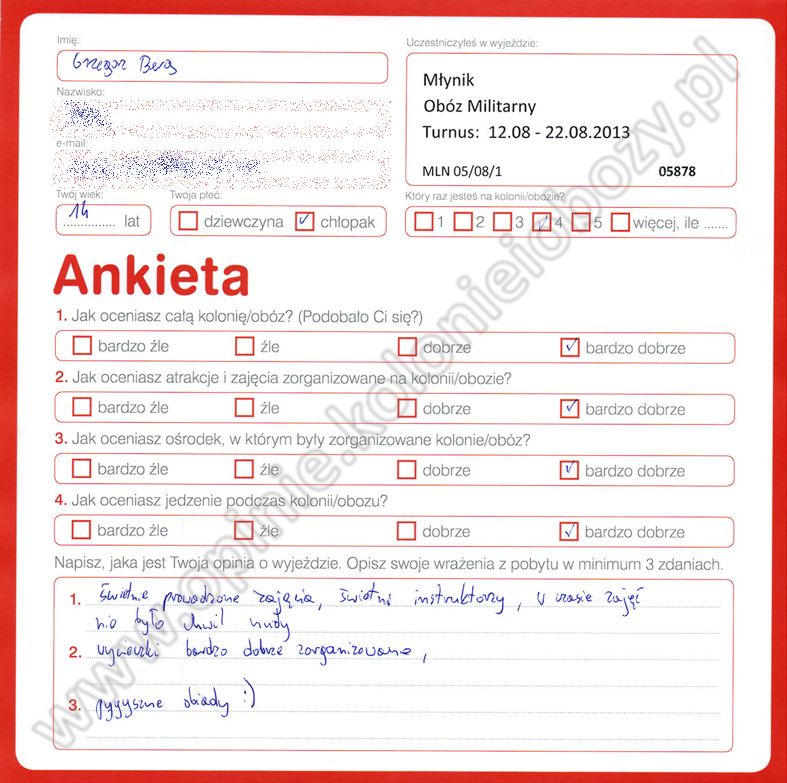 Imię:
Grzegorz Berg
Uczestniczyłeś w wyjeździe:
Młynik
Obóz Militarny
Turnus: 12.08 - 22.08.2013
MLN 05/08/1 05878
Nazwisko:
e-mail:
Twój wiek:
14 lat
Twoja płeć:
dziewczyna chłopak
Który raz jesteś na kolonii/obozie?
1 2 3 4 5 więcej, ile .......
Ankieta
1. Jak oceniasz całą kolonię/obóz? (Podobało Ci się?)
bardzo źle źle dobrze bardzo dobrze
2. Jak oceniasz atrakcje i zajęcia zorganizowane na kolonii/obozie?
bardzo źle źle dobrze bardzo dobrze
3. Jak oceniasz ośrodek, w którym były zorganizowane kolonie/obóz?
bardzo źle źle dobrze bardzo dobrze
4. Jak oceniasz jedzenie podczas kolonii/obozu?
bardzo źle źle dobrze bardzo dobrze
Napisz, jaka jest Twoja opinia o wyjeździe. Opisz swoje wrażenia z pobytu w minimum 3 zdaniach.
1. świetnie prowadzone zajęcia, świetni instruktorzy, w czasie zajęć
nie było chwil nudy
2. wycieczki bardzo dobrze zorganizowane,
3. pyyyszne obiady :)
www.opinie.kolonieiobozy.pl